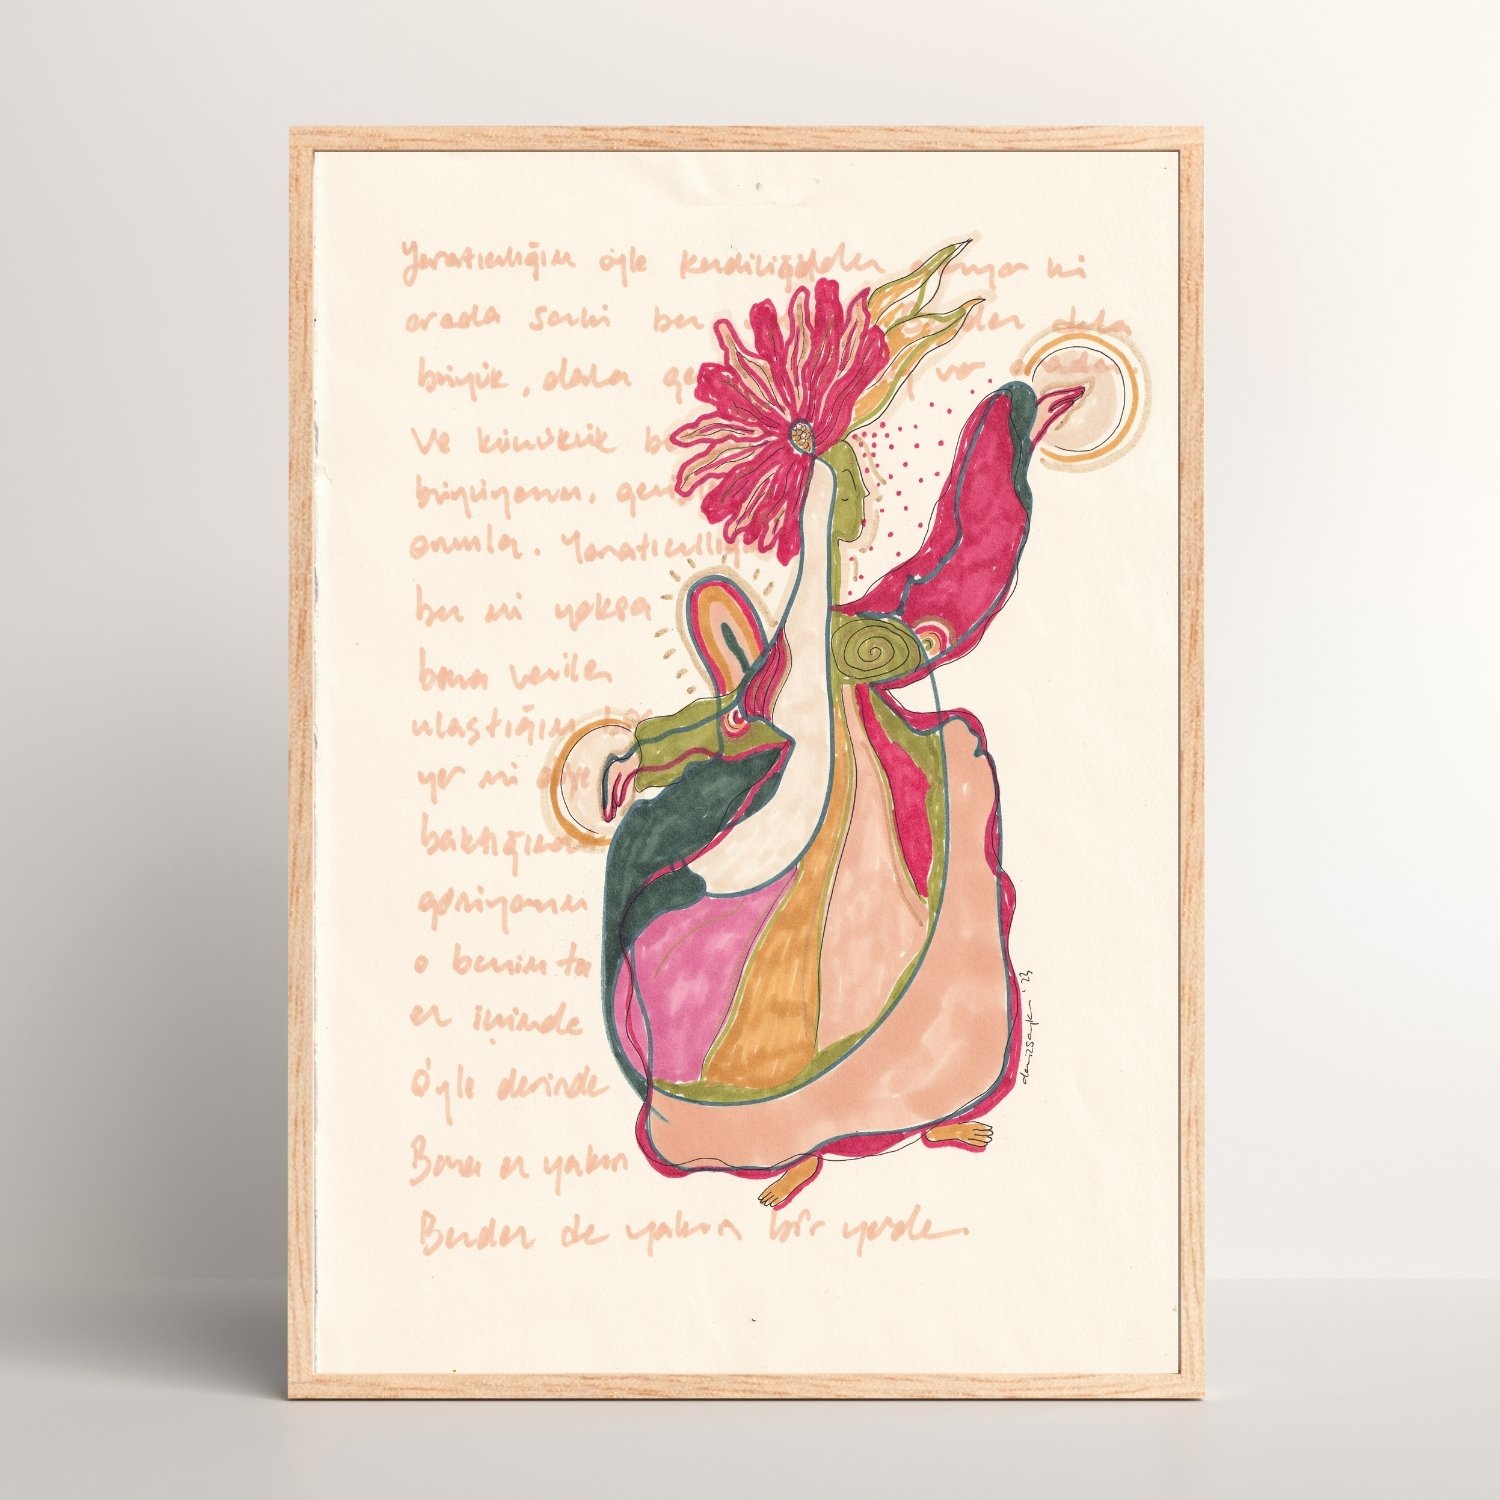 Yaratıcılığım öyle kendiliğinden ki
orada sanki ben
büyük, daha
Ve küçücük
büyüyorum,
onunla. Yaratıcılığım
ben mi yoksa
bana verilen
ulaştığım bir
yer mi öyle
baktığımda
görüyorum
o benim ta
en içimde
Öyle derinde
Bana en yakın
Benden de yakın bir yerde.
denizsayk '23